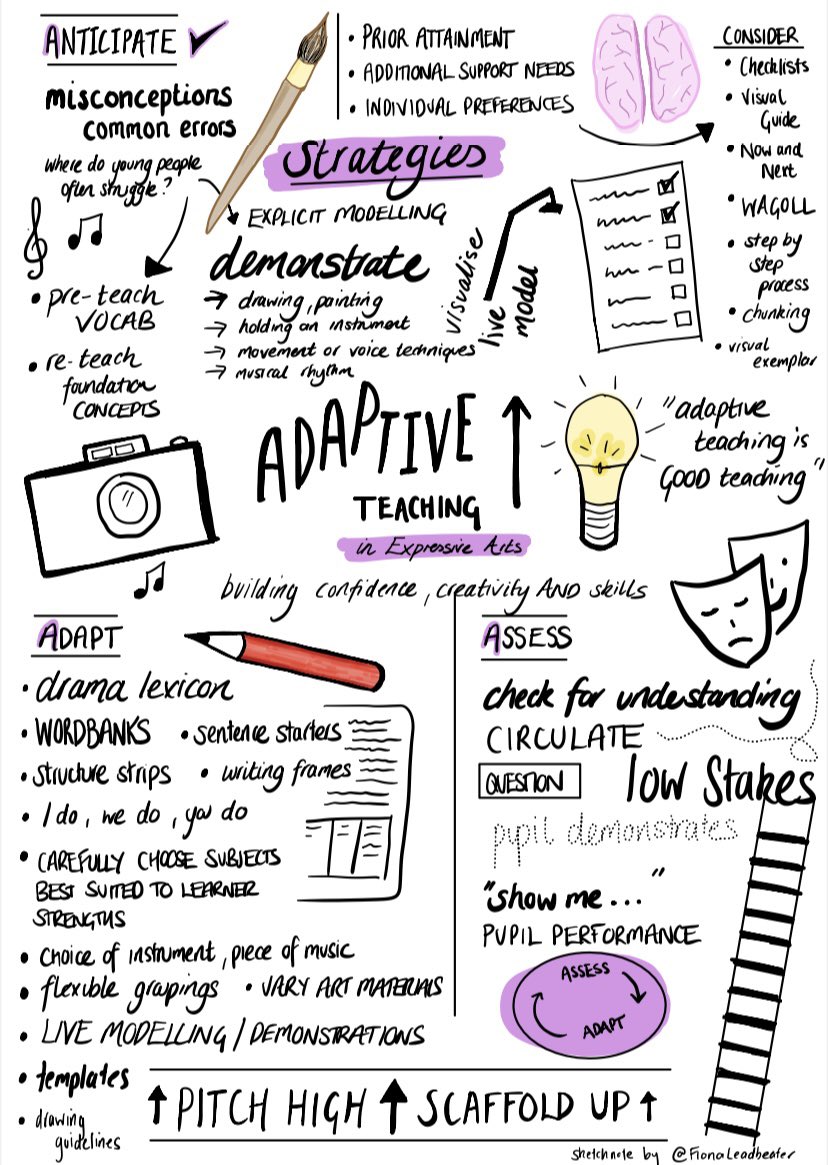 ANTICIPATE
misconceptions
common errors
where do young people
often struggle?
• pre-teach
VOCAB
• re-teach
foundation
CONCEPTS
• PRIOR ATTAINMENT
• ADDITIONAL SUPPORT NEEDS
• INDIVIDUAL PREFERENCES
CONSIDER
• Checklists
• Visual
Guide
• Now and
Next
• WAGOLL
• step by
step
process
• chunking
• visual
exemplar
Strategies
EXPLICIT MODELLING
demonstrate
→ drawing, painting
→ holding an instrument
→ movement or voice techniques
→ musical rhythm
visualise
live
model
ADAPTIVE
TEACHING
in Expressive Arts
"adaptive
teaching is
GOOD teaching"
building confidence, creativity AND skills
ADAPT
• drama lexicon
• WORDBANKS • sentence starters
• structure strips • writing frames
• I do, we do, you do
• CAREFULLY CHOOSE SUBJECTS
BEST SUITED TO LEARNER
STRENGTHS
• Choice of instrument, piece of music
• flexible grapings • VARY ART MATERIALS
• LIVE MODELLING / DEMONSTRATIONS
• templates
• drawing
guidelines
ASSESS
check for understanding
CIRCULATE
QUESTION
low Stakes
pupil demonstrates
"show me..."
PUPIL PERFORMANCE
ASSESS
ADAPT
↑ PITCH HIGH ↑ SCAFFOLD UP ↑
sketchnote by @FionaLeadbeater